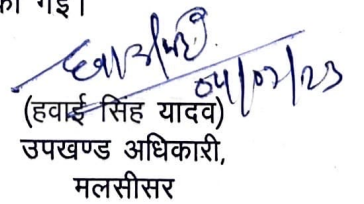 की गई।
04/07/23
(हवाई सिंह यादव)
उपखण्ड अधिकारी,
मलसीसर